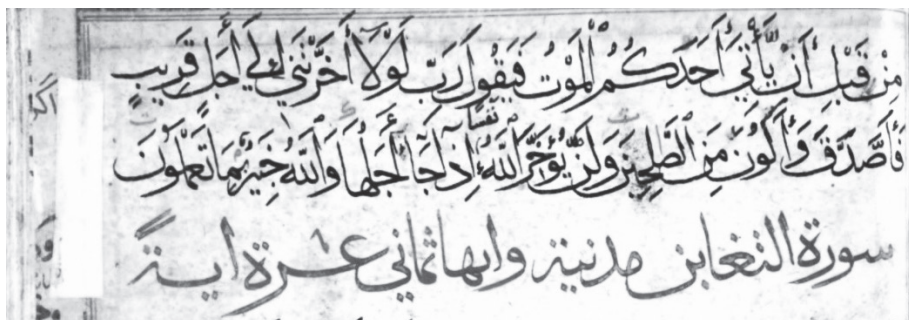 مِنْ قَبْلِ أَنْ يَأْتِيَ أَحَدَكُمُ الْمَوْتُ فَيَقُولَ رَبِّ لَوْلَا أَخَّرْتَنِي إِلَى أَجَلٍ قَرِيبٍ
فَأَصَّدَّقَ وَأَكُونَ مِنَ الصَّلِحِينَ وَلَنْ يُؤَخِّرَ اللَّهُ نَفْسًا إِذَا جَاءَ أَجَلُهَا وَاللَّهُ خَبِيرٌ بِمَا تَعْمَلُونَ
سورة التغابن مدنية وايها ثماني عشرة اية